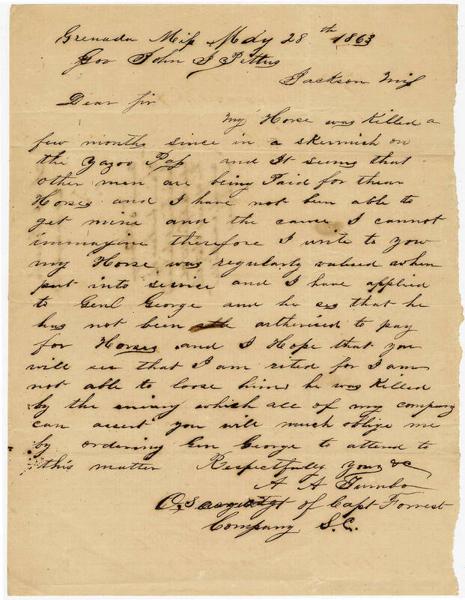 Grenada Miss May 28th 1863
Gov John J Pettus
Jackson Miss
Dear Sir
My Horse was Killed a
few months since in a skermish on
the Yazoo Pass and It seems that
other men are being Paid for thear
Horses and I have not been able to
get mine and the cause I cannot
immagine therefore I write to you
my Horse was regularly valued when
put into service and I have applied
to Genl George and he ses that he
has not been autherised to pay
for Horses and I Hope that you
will see that I am rited for I am
not able to loose him he was Killed
by the enimy which all of my company
can assert you will much oblige me
by ordering Gen George to attend to
this matter Respectfully Yours &c
A A
of Capt Forrest
Company S.C.